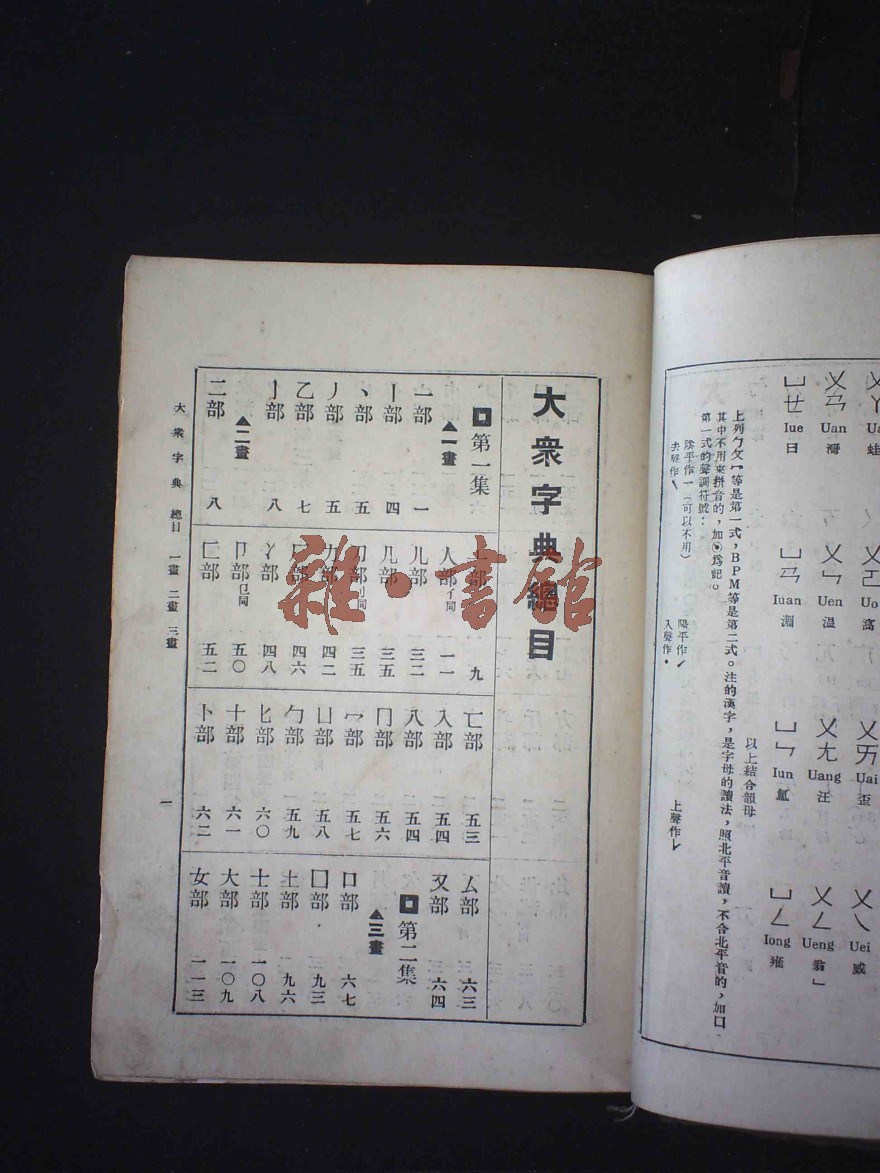 ㄨㄚ Ua 蛙
ㄨㄛ Uo 窩
ㄨㄞ Uai 歪
ㄨㄟ Uei 威
ㄨㄢ Uan 灣
ㄨㄣ Uen 溫
ㄨㄤ Uang 汪
ㄨㄥ Ueng 翁」
ㄩㄝ Iue 曰
ㄩㄢ Iuan 淵
ㄩㄣ Iun 氳
ㄩㄥ Iong 雍
以上結合韻母
上列ㄅㄆㄇ等是第一式，BPM等是第二式。注的漢字，是字母的讀法，照北平音讀，不合北平音的，加囗、
其中不用來拼音的，加◉爲記。
第一式的聲調符號：
陰平作一（可以不用） 陽平作ˊ 上聲作ˇ
去聲作ˋ 入聲作•
大衆字典總目
第一集
▲一畫
一部 一
丨部 四
丶部 五
丿部 五
乙部 七
亅部 八
▲二畫
二部 八
亠部 九
人部亻同 一一
儿部 三二
几部 三五
刀部刂同 三五
力部 四二
厂部 四六
冫部 四八
卩部㔾同 五〇
匚部 五二
匸部 五三
入部 五四
八部 五四
冂部 五六
冖部 五七
凵部 五八
勹部 五九
匕部 六〇
十部 六一
卜部 六二
厶部 六三
又部 六四
第二集
▲三畫
口部 六七
囗部 九三
土部 九六
士部 一〇八
大部 一〇九
女部 一一三
大衆字典 總目 一畫 二畫 三畫
一
雜·書館